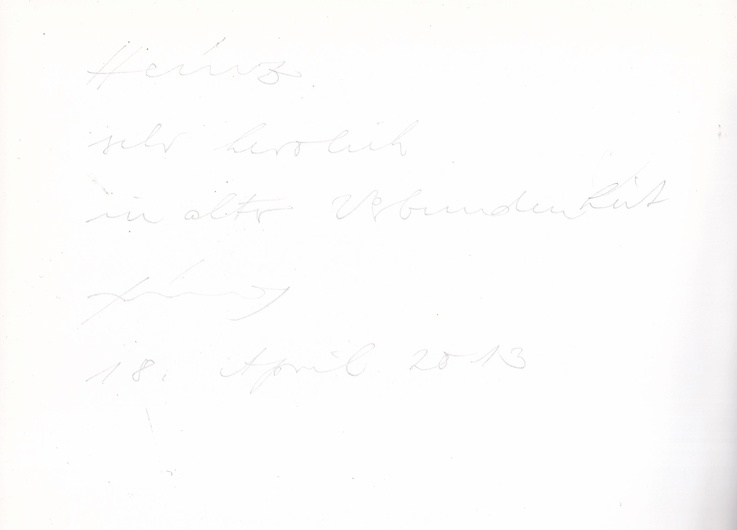 Heinz
sehr herzlich
in alter Verbundenheit
18. April 2013